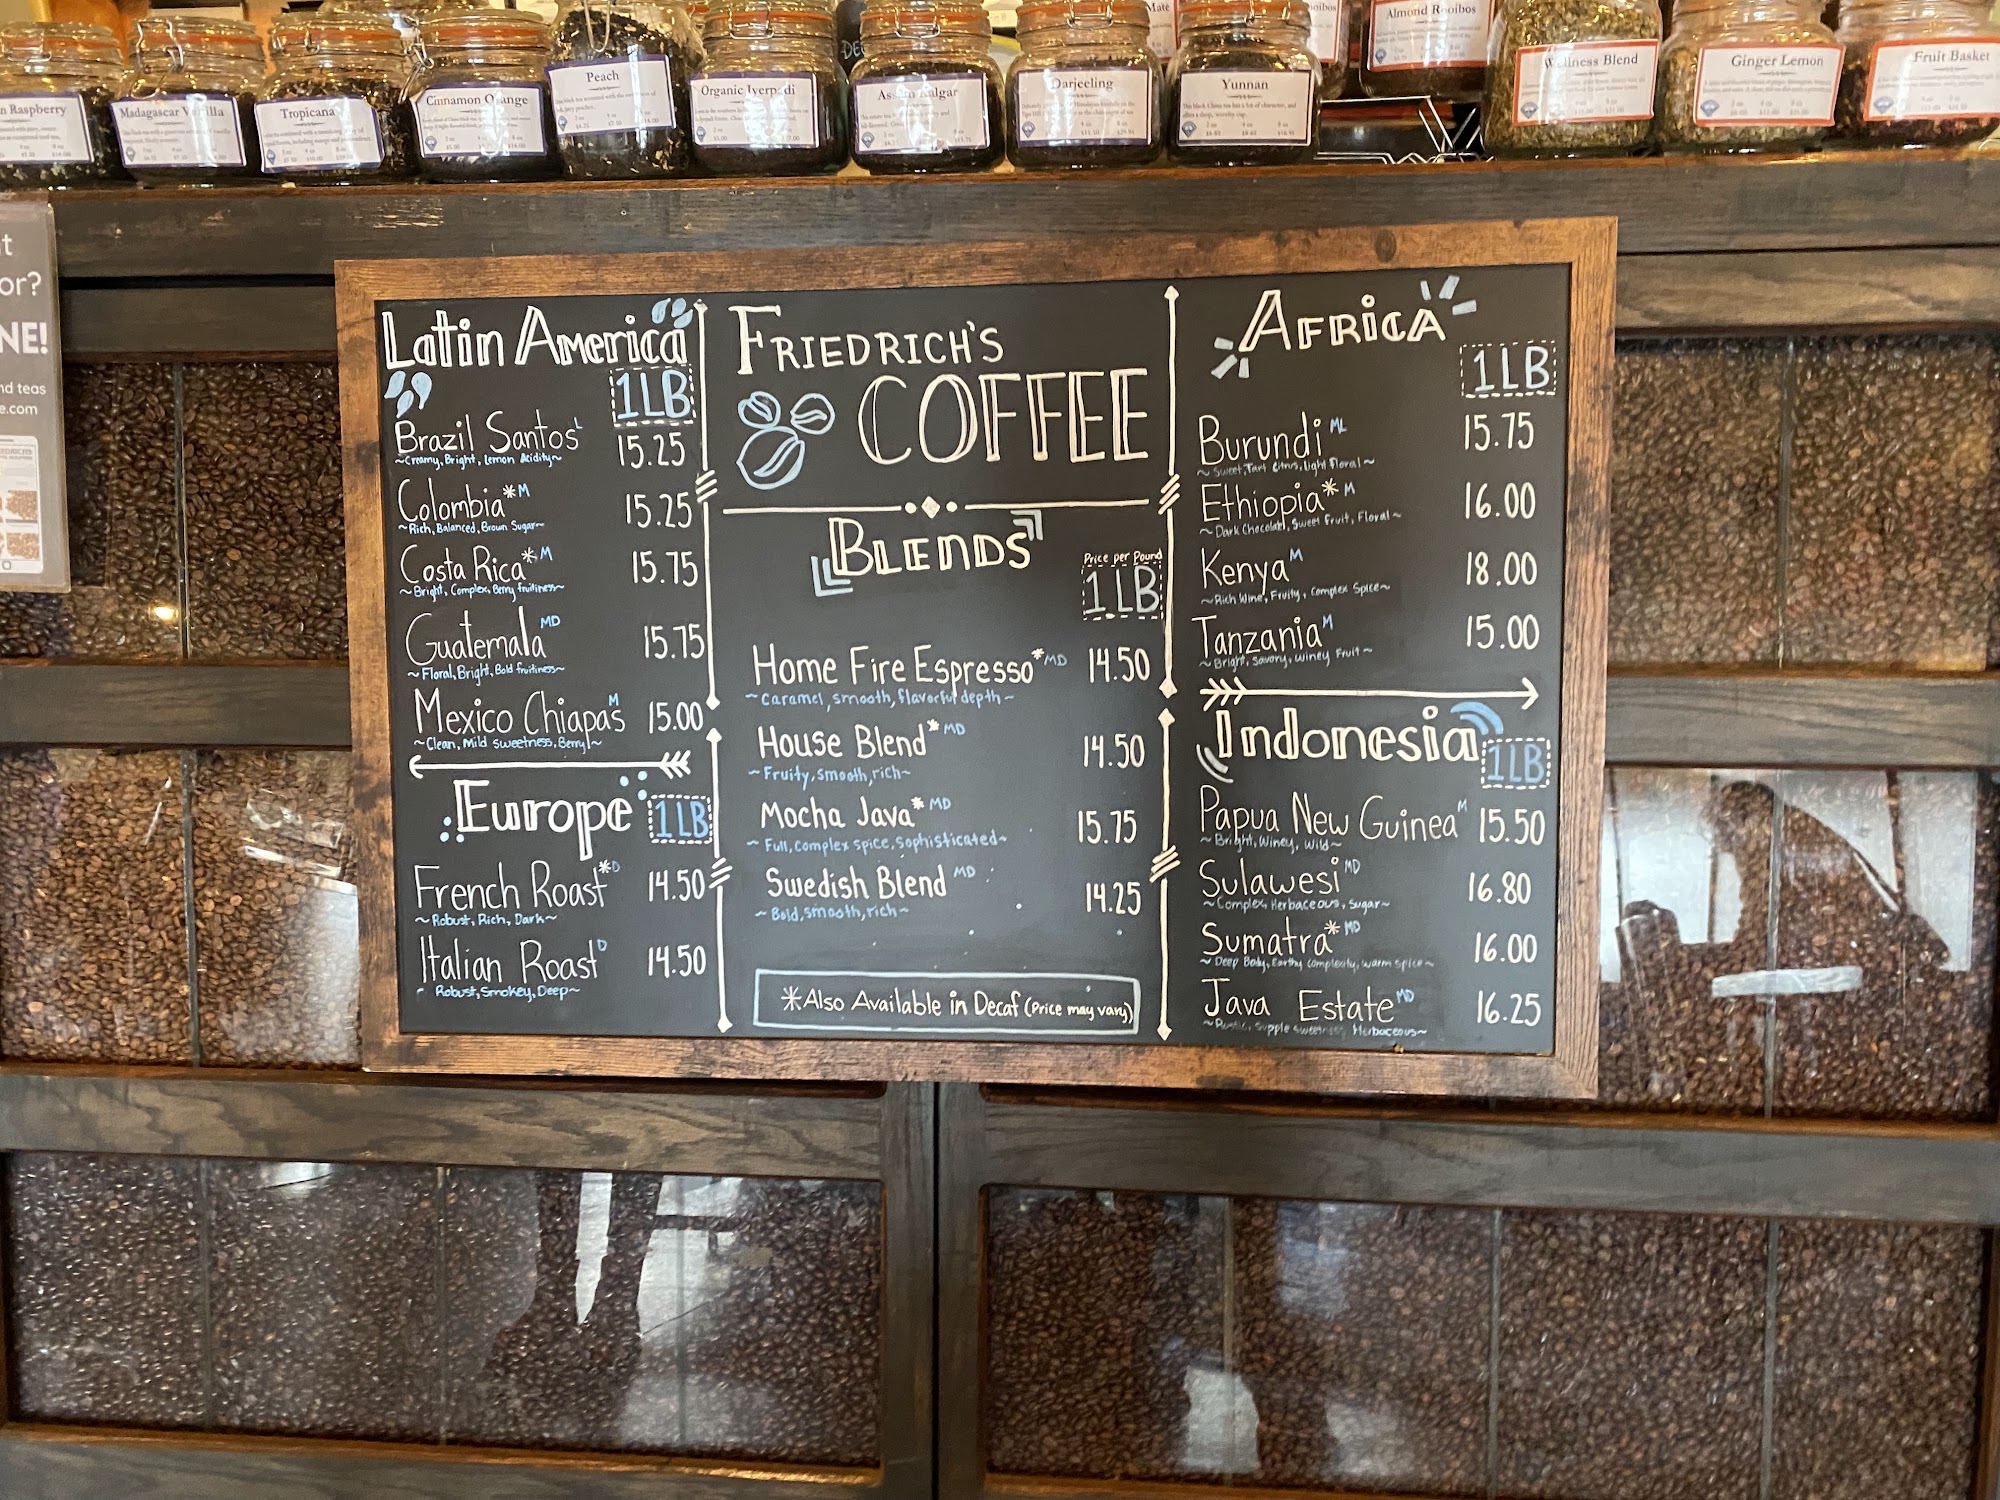 Mate
Almond Rooibos
Raspberry
Madagascar Vanilla
Tropicana
Cinnamon Orange
Peach
Organic Iyerpadi
Assam
Darjeeling
Yunnan
Wellness Blend
Ginger Lemon
Fruit Basket
or?
NE!
nd teas
e.com
Latin America
1LB
Brazil Santos L 15.25
~Creamy, Bright, Lemon Acidity~
Colombia* M 15.25
~Rich, Balanced, Brown Sugar~
Costa Rica* M 15.75
~Bright, Complex, Berry fruitiness~
Guatemala MD 15.75
~Floral, Bright, Bold fruitiness~
Mexico Chiapas M 15.00
~Clean, Mild sweetness, Berry~
Europe 1LB
French Roast* D 14.50
~Robust, Rich, Dark~
Italian Roast D 14.50
Robust, Smokey, Deep~
FRIEDRICH'S
COFFEE
BLENDS
Price per Pound
1LB
Home Fire Espresso* MD 14.50
~Caramel, smooth, flavorful depth~
House Blend* MD 14.50
~Fruity, smooth, rich~
Mocha Java* MD 15.75
~Full, complex spice, sophisticated~
Swedish Blend MD 14.25
~Bold, smooth, rich~
*Also Available in Decaf (Price may vary)
AFRICA
1LB
Burundi ML 15.75
~Sweet, Tart Citrus, Light Floral~
Ethiopia* M 16.00
~Dark Chocolate, Sweet Fruit, Floral~
Kenya M 18.00
~Rich Wine, Fruity, Complex Spice~
Tanzania M 15.00
~Bright, Savory, Winey Fruit~
Indonesia 1LB
Papua New Guinea M 15.50
~Bright, Winey, Wild~
Sulawesi MD 16.80
~Complex, Herbaceous, Sugar~
Sumatra* MD 16.00
~Deep Body, Earthy Complexity, Warm Spice~
Java Estate MD 16.25
~Rustic, Supple sweetness, Herbaceous~